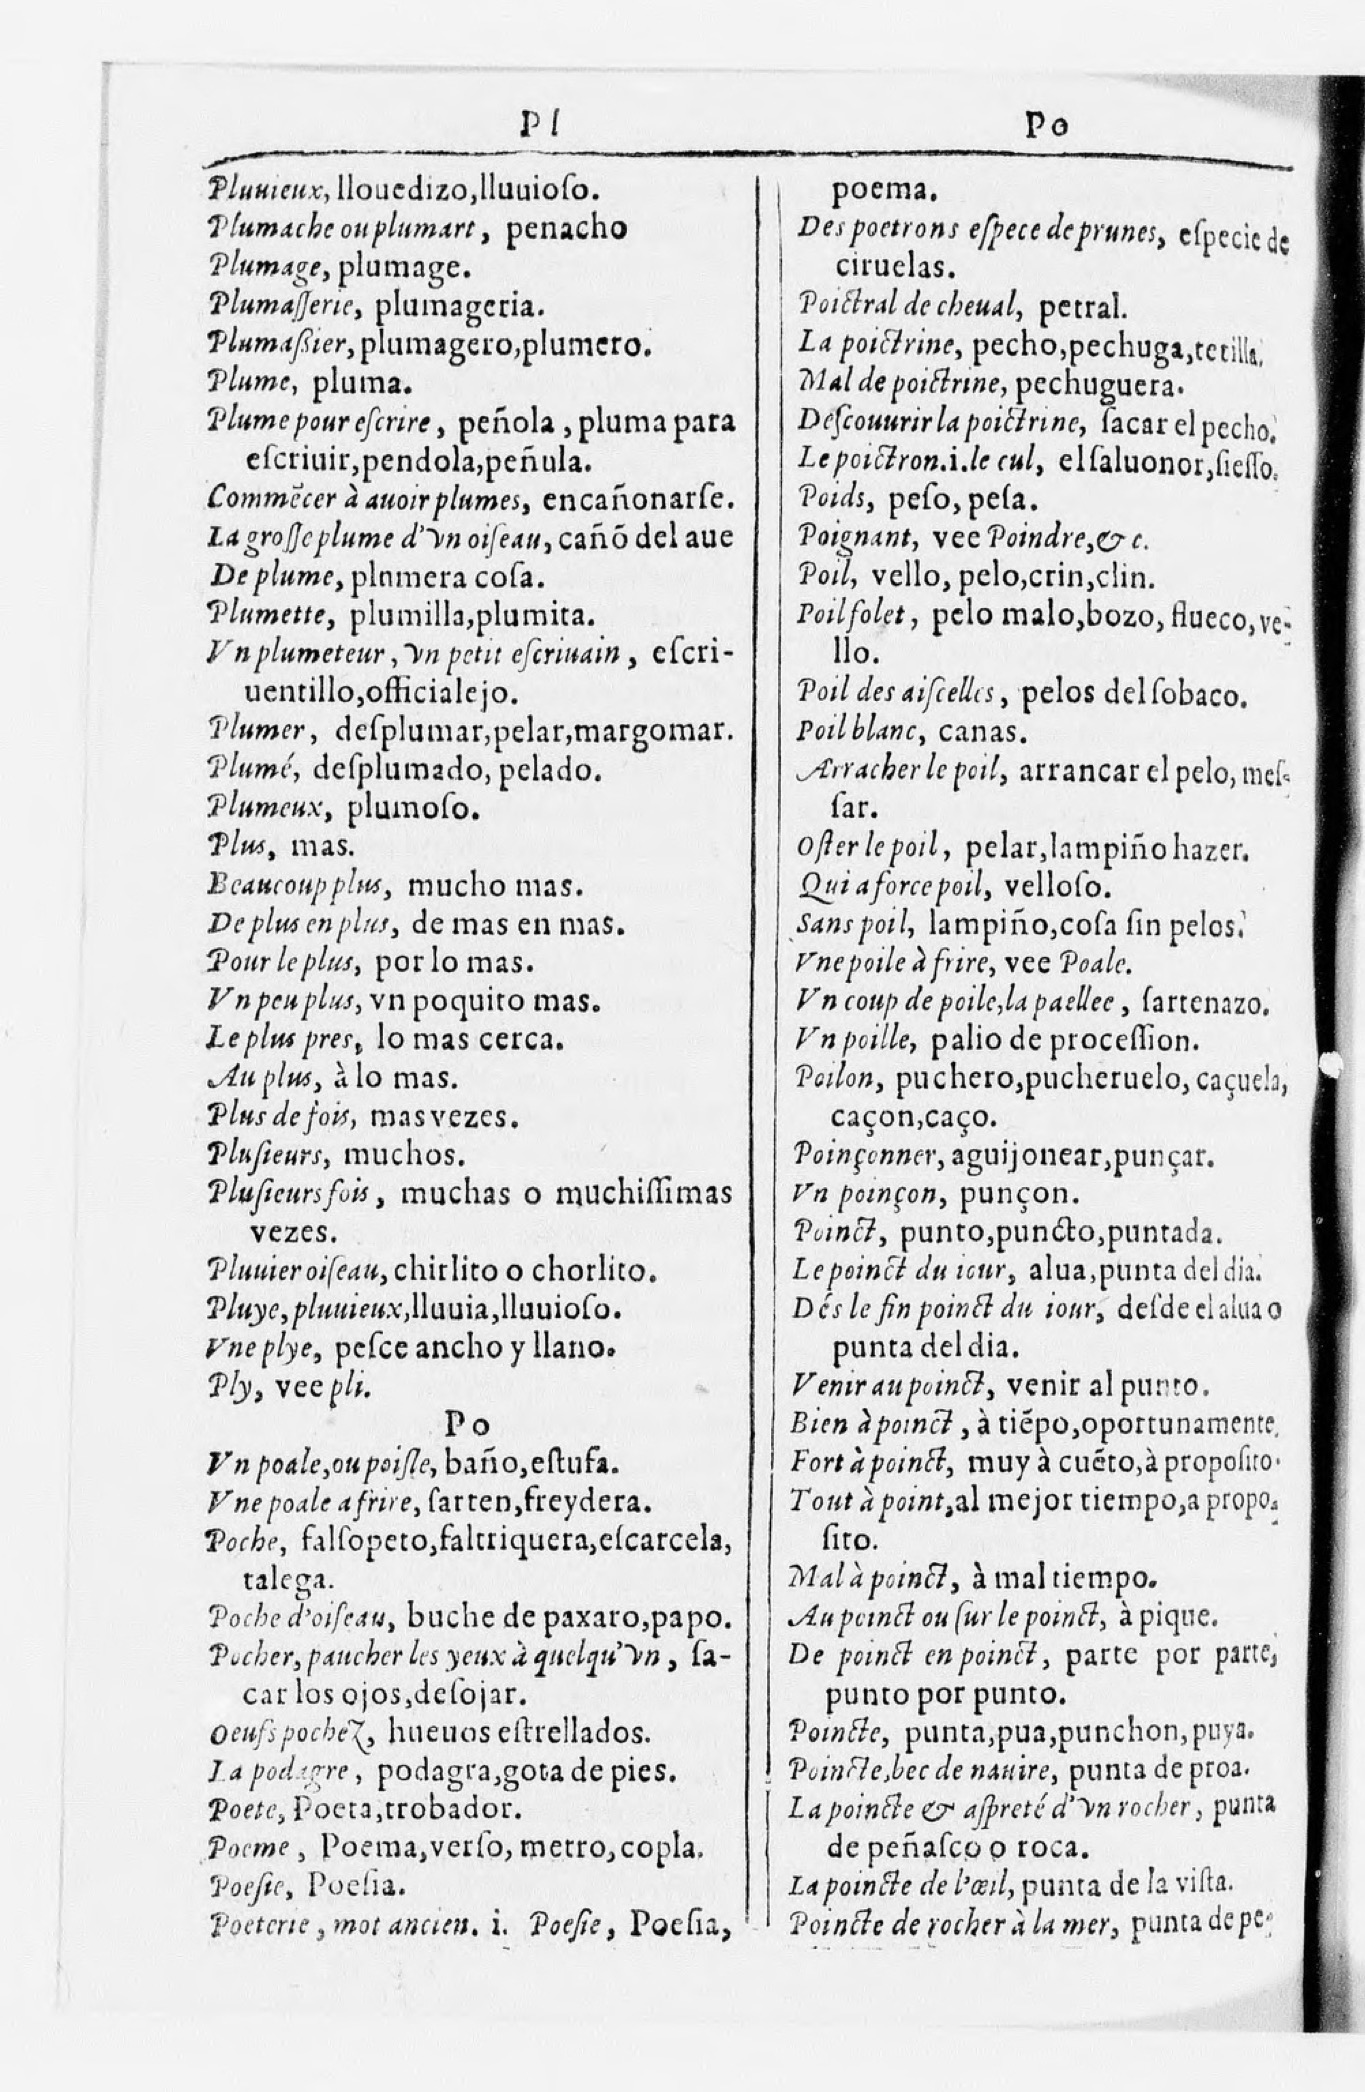 Pl
Pluuieux, llouedizo,lluuioſo.
Plumache ou plumart, penacho
Plumage, plumage.
Plumaſſerie, plumageria.
Plumaßier, plumagero,plumero.
Plume, pluma.
Plume pour eſcrire, peñola, pluma para
eſcriuir,pendola,peñula.
Commẽcer à auoir plumes, encañonarſe.
La groſſe plume d'vn oiſeau, cañõ del aue
De plume, plumera coſa.
Plumette, plumilla,plumita.
Vn plumeteur, vn petit eſcriuain, eſcri-
uentillo,officialejo.
Plumer, deſplumar,pelar,margomar.
Plumé, deſplumado, pelado.
Plumeux, plumoſo.
Plus, mas.
Beaucoup plus, mucho mas.
De plus en plus, de mas en mas.
Pour le plus, por lo mas.
Vn peu plus, vn poquito mas.
Le plus pres, lo mas cerca.
Au plus, à lo mas.
Plus de fois, mas vezes.
Pluſieurs, muchos.
Pluſieurs fois, muchas o muchiſſimas
vezes.
Pluuier oiſeau, chirlito o chorlito.
Pluye, pluuieux,lluuia,lluuioſo.
Vne plye, peſce ancho y llano.
Ply, vee pli.
Po
Vn poale,ou poiſle, baño,eſtufa.
Vne poale a frire, ſarten,freydera.
Poche, falſopeto,faltriquera,eſcarcela,
talega.
Poche d'oiſeau, buche de paxaro,papo.
Pocher, paucher les yeux à quelqu'vn, ſa-
car los ojos,deſojar.
Oeufs pochez, hueuos eſtrellados.
La podagre, podagra,gota de pies.
Poete, Poeta,trobador.
Poeme, Poema,verſo, metro,copla.
Poeſie, Poeſia.
Poeterie, mot ancien. i. Poeſie, Poeſia,
Po
poema.
Des poetrons eſpece de prunes, eſpecie de
ciruelas.
Poictral de cheual, petral.
La poictrine, pecho,pechuga,tetilla.
Mal de poictrine, pechuguera.
Deſcouurir la poictrine, ſacar el pecho.
Le poictron.i.le cul, el ſaluonor,ſieſſo.
Poids, peſo, peſa.
Poignant, vee Poindre,& c.
Poil, vello, pelo,crin,clin.
Poil folet, pelo malo,bozo, flueco, ve-
llo.
Poil des aiſcelles, pelos del ſobaco.
Poil blanc, canas.
Arracher le poil, arrancar el pelo, meſ-
ſar.
Oſter le poil, pelar,lampiño hazer.
Qui a force poil, velloſo.
Sans poil, lampiño,coſa ſin pelos.
Vne poile à frire, vee Poale.
Vn coup de poile,la paellee, ſartenazo.
Vn poille, palio de proceſſion.
Poilon, puchero,pucheruelo, caçuela,
caçon,caço.
Poinçonner, aguijonear,punçar.
Vn poinçon, punçon.
Poinct, punto,puncto,puntada.
Le poinct du iour, alua,punta del dia.
Dés le fin poinct du iour, deſde el alua o
punta del dia.
Venir au poinct, venir al punto.
Bien à poinct, à tiẽpo,oportunamente.
Fort à poinct, muy à cuẽto,à propoſito.
Tout à point,al mejor tiempo,a propo-
ſito.
Mal à poinct, à mal tiempo.
Au poinct ou ſur le poinct, à pique.
De poinct en poinct, parte por parte,
punto por punto.
Poincte, punta,pua,punchon,puya.
Poincte,bec de nauire, punta de proa.
La poincte & aſpreté d'vn rocher, punta
de peñaſco o roca.
La poincte de l'œil, punta de la viſta.
Poincte de rocher à la mer, punta de pe-